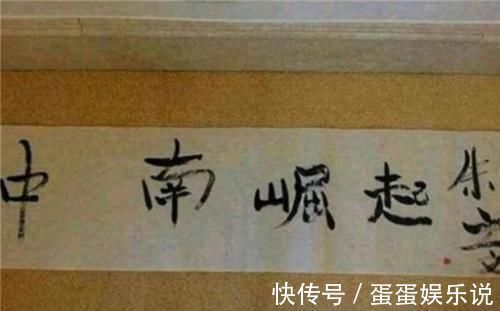 中南崛起
朱
快传号 / 蛋蛋娱乐说